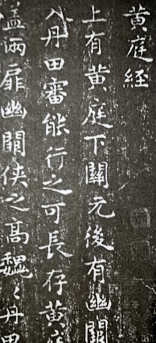 黄庭經
上有黄庭下關元後有幽闕
入丹田審能行之可長存黄庭
盖兩扉幽闕俠之高魏〻丹田